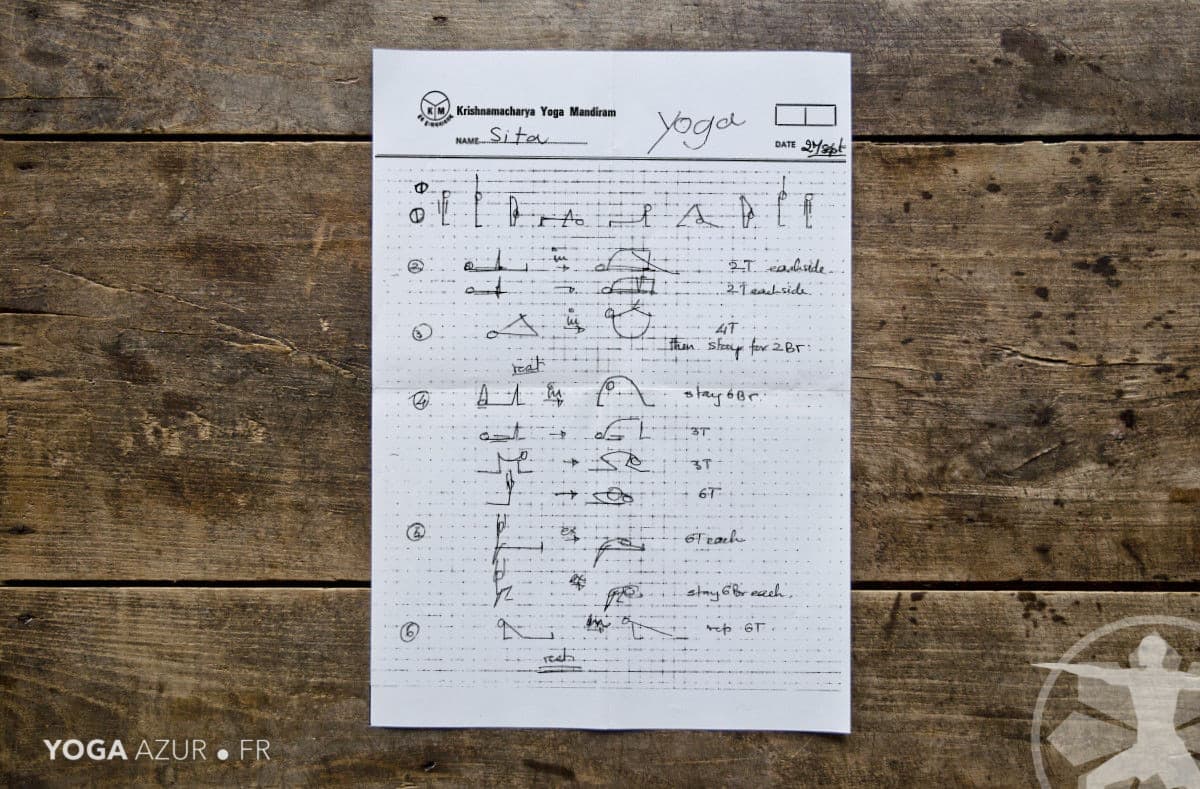 KYM
Krishnamacharya Yoga Mandiram
NAME Sita
Yoga
DATE 27 Sept
①
①
② in 2T each side
2T each side
③ in 4T
then stay for 2 Br
rest
④ in stay 6 Br.
3T
3T
6T
ex 6T each
ex stay 6 Br each.
⑥ in rep 6T.
rest
YOGA AZUR • FR